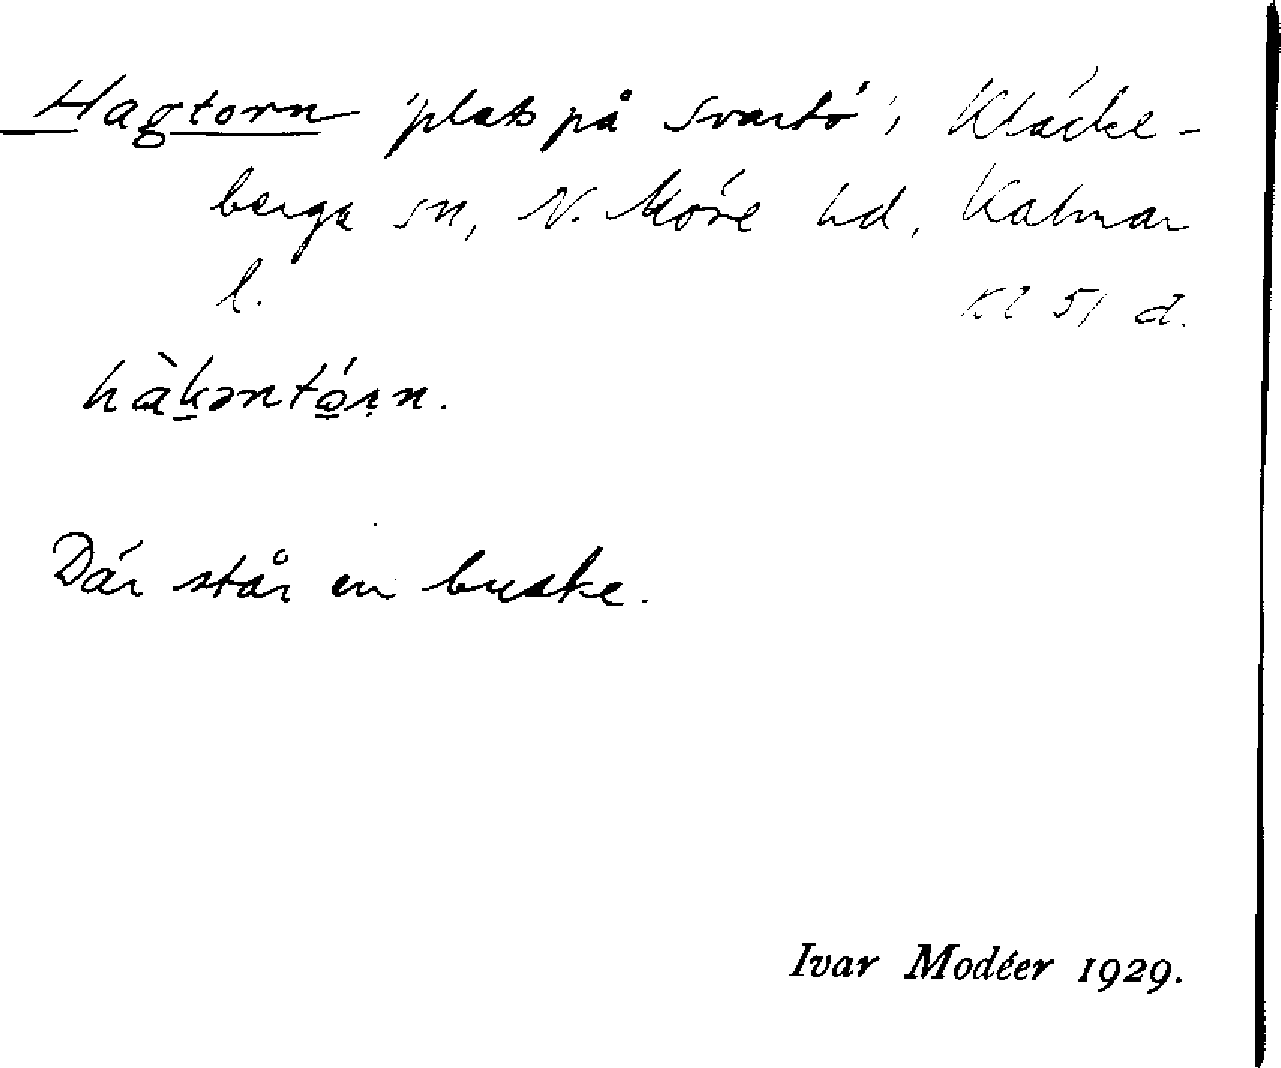 Hagtorn 'plats på Svartö', Kläcke-
berga sn, N. Möre hd, Kalmar
l.
Kl 51 d.
hàkəntórn.
Där står en buske.
Ivar Modéer 1929.